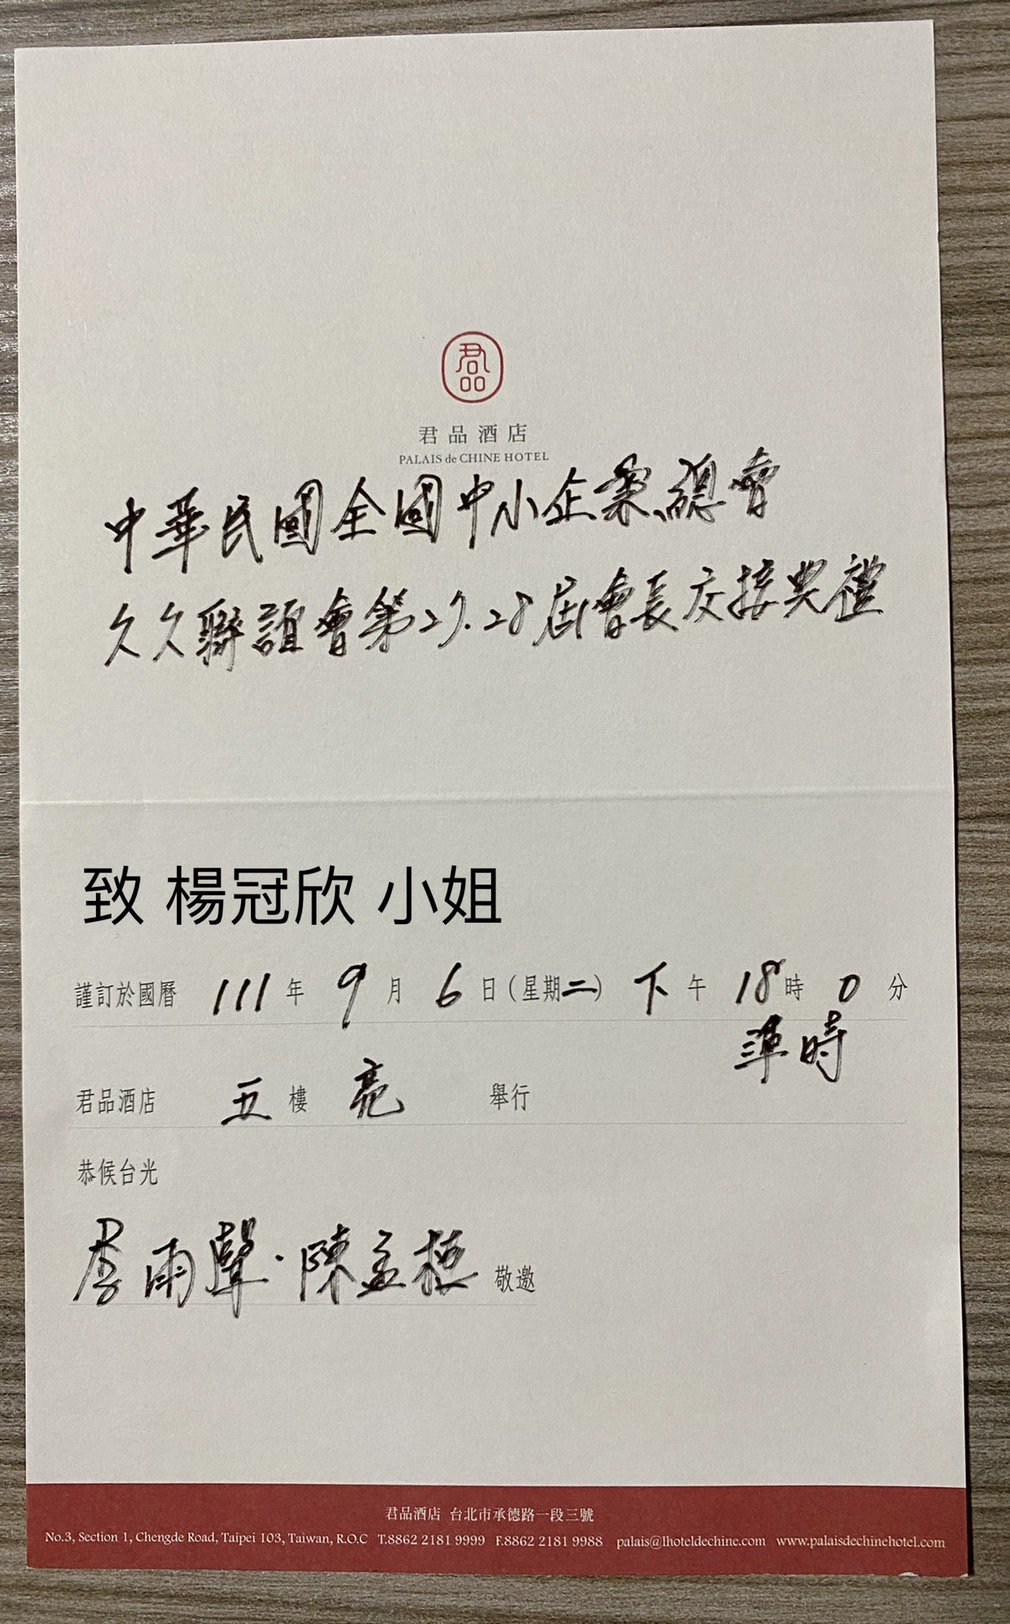 君品
君品酒店
PALAIS de CHINE HOTEL
中華民國全國中小企業總會
久久聯誼會第27.28屆會長交接典禮
致 楊冠欣 小姐
謹訂於國曆 111 年 9 月 6 日(星期二) 下午 18時 0 分
準時
君品酒店 五樓 亮 舉行
恭候台光
李雨聲·陳孟 敬邀
君品酒店 台北市承德路一段三號
No.3, Section 1, Chengde Road, Taipei 103, Taiwan, R.O.C T.8862 2181 9999 F.8862 2181 9988 palais@lhoteldechine.com www.palaisdechinehotel.com